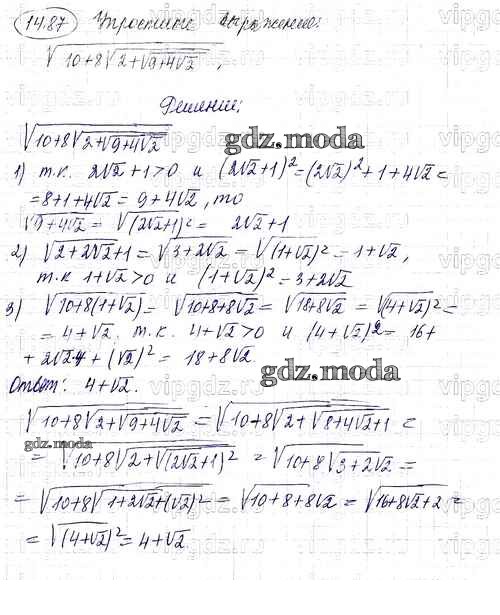 14.87 Упростите выражение:
√(10+8√(2+√(9+4√2))),
Решение:
√(10+8√(2+√(9+4√2)))
gdz.moda
1) т.к. 2√2+1>0 и (2√2+1)²=(2√2)²+1+4√2=
=8+1+4√2=9+4√2, то
√(9+4√2)=√((2√2+1)²)= 2√2+1
2) √(2+2√2+1)=√(3+2√2)=√((1+√2)²)=1+√2,
т.к 1+√2>0 и (1+√2)²=3+2√2
3) √(10+8(1+√2))=√(10+8+8√2)=√(18+8√2)=√((4+√2)²)=
=4+√2. т.к. 4+√2>0 и (4+√2)²=16+
+2√2·4+(√2)²=18+8√2.
Ответ: 4+√2.
gdz.moda
√(10+8√(2+√(9+4√2)))=√(10+8√(2+√(8+4√2+1)))=
gdz.moda
=√(10+8√(2+√((2√2+1)²)))=√(10+8√(3+2√2))=
=√(10+8√(1+2√2+(√2)²))=√(10+8+8√2)=√(16+8√2+2)=
=√((4+√2)²)=4+√2.